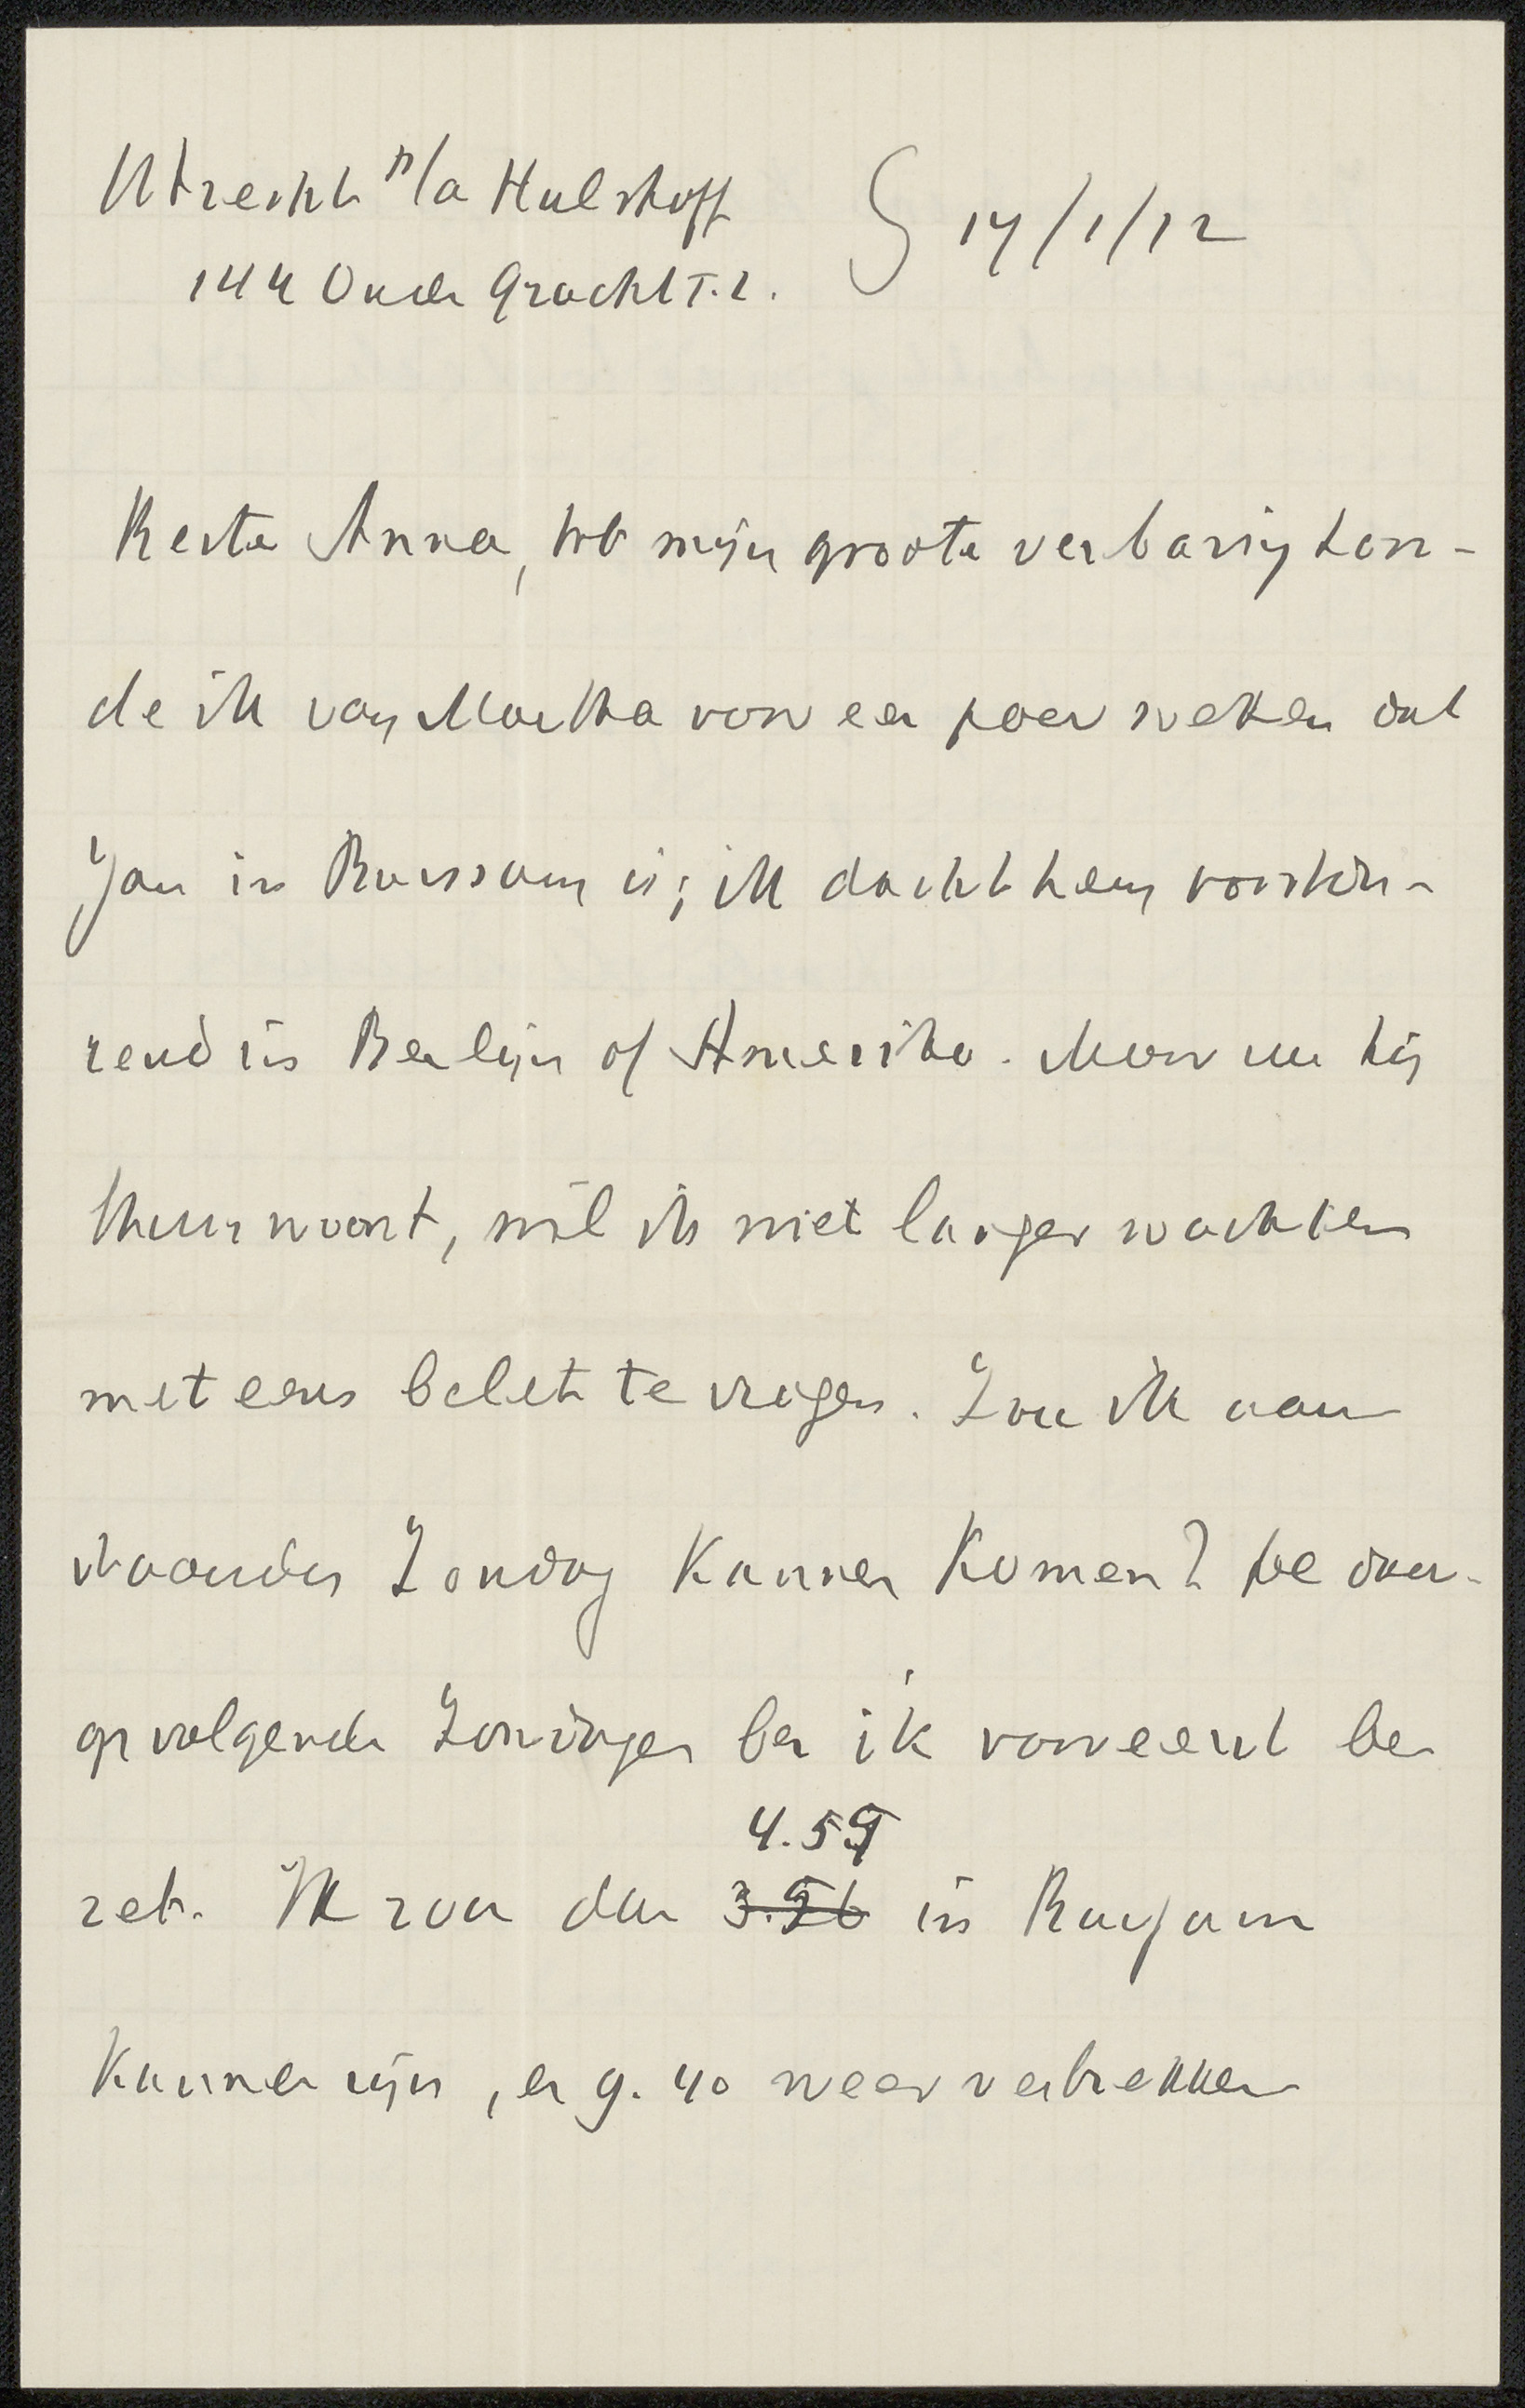 Utrecht p/a Hulshoff
144 Oude Gracht T.Z. 17/1/12
Beste Anna, tot mijn groote verbazing hoor-
de ik van Martha voor een paar weken dat
Jan in Bussum is; ik dacht hem voortdu-
rend in Berlijn of Amerika. Maar nu hij
thuis woont, wil ik niet langer wachten
met eens belet te vragen. Zou ik aan-
staanden Zondag kunnen komen? De daar-
op volgende Zondagen ben ik vooreerst be
zet. Ik zou dan 3.56 4.59 in Bussum
kunnen zijn, en 9.40 weer vertrekken